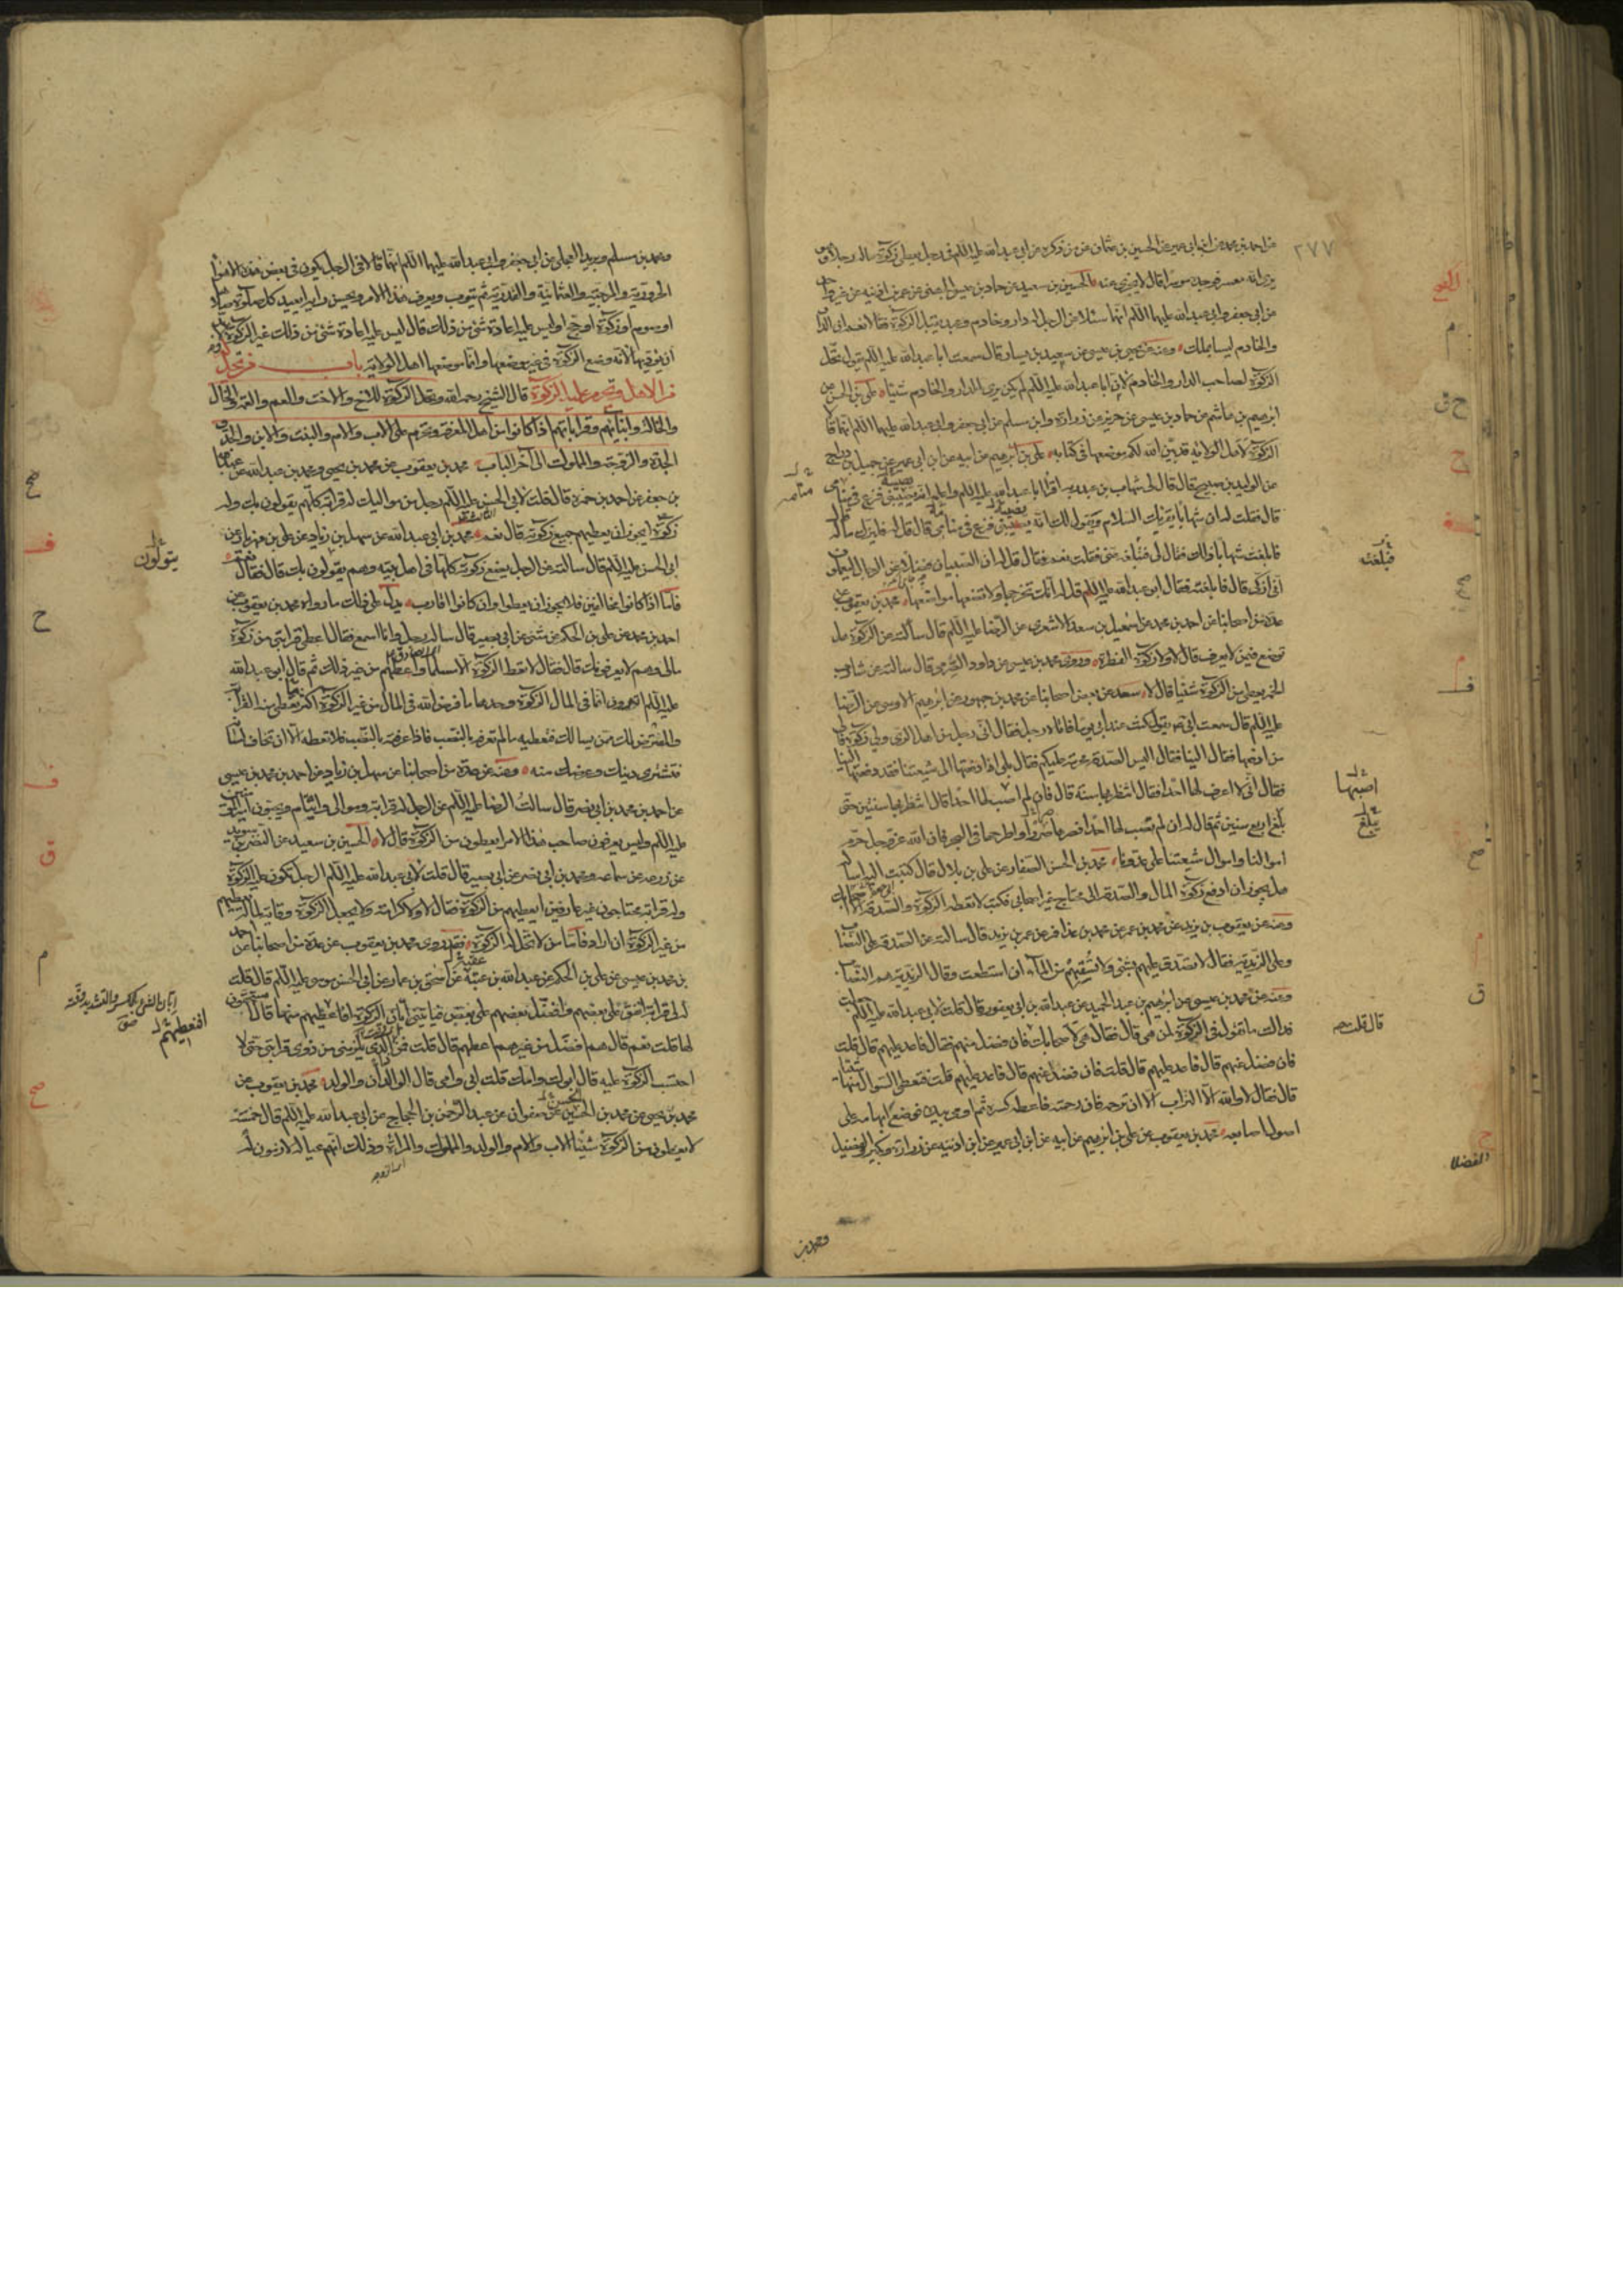 ٢٧٧
عن احمد بن محمد عن ابن ابي عمير عن الحسين بن عثمان عن من ذكره عن ابي عبد الله عليه السلم في رجل يعطي زكوة ماله رجلا وهو
يرى انه معسر فوجده موسرا قال لا يجزي عنه الحسين بن سعيد عن حماد بن عيسى عن عمر بن اذينه عن غير واحد
عن ابي جعفر وابي عبد الله عليهما السلم انهما سئلا عن الرجل له دار وخادم وعبد يقبل الزكوة فقالا نعم ان الدار
والخادم ليسا بملك وعنه عن يحيى بن عيسى عن سعيد بن يسار قال سمعت ابا عبد الله عليه السلم يقول تحل
الزكوة لصاحب الدار والخادم لان ابا عبد الله عليه السلم لم يكن يرى الدار والخادم شيئا علي بن الحسن عن
ابرهيم بن هاشم عن حماد بن عيسى عن حريز عن زرارة وابن مسلم عن ابي جعفر وابي عبد الله عليهما السلم انهما قالا
الزكوة لاهل الولايه قد بين الله لكم موضعها في كتابه علي بن ابرهيم عن ابيه عن ابن ابي عمير عن جميل بن دراج
عن الوليد بن صبيح قال قال لي شهاب بن عبد ربه اقرأ ابا عبد الله عليه السلم واعلمه انه يصيبني فزع في منامي
قال فقلت له ان شهابا يقرئك السلام ويقول لك انه يصيبني فزع في منامي قال قل له فليزك ماله
فابلغت شهابا ذلك فقال لي فتبلغه عني فقلت نعم فقال قل له ان الصبيان فضلا عن الرجال ليعلمون
اني ازكي مالي قال فابلغته فقال ابو عبد الله عليه السلم قل له انك تخرجها ولا تضعها مواضعها محمد بن يعقوب عن
عدة من اصحابنا عن احمد بن محمد عن اسمعيل بن سعد الاشعري عن الرضا عليه السلم قال سألته عن الزكوة هل
توضع فيمن لا يعرف قال لا ولا زكوة الفطرة وروى محمد بن عيسى عن داود الصرمي قال سالته عن شارب
الخمر يعطى من الزكوة شيئا قال لا سعد عن بعض اصحابنا عن محمد بن جمهور عن ابرهيم الاوسي عن الرضا
عليه السلم قال سمعت ابي يقول كنت عند ابي يوما فاتاه رجل فقال اني رجل من اهل الري ولي زكوة فالى
من ادفعها فقال الينا فقال اليس الصدقة محرمة عليكم فقال بلى اذا دفعتها الى شيعتنا فقد دفعتها الينا
فقال اني لا اعرف لها احدا فقال انتظر بها سنة قال فان لم اصب لها احدا قال انتظر بها سنتين حتى
بلغ اربع سنين ثم قال له ان لم تصب لها احدا فصرها صررا واطرحها في البحر فان الله عز وجل حرم
اموالنا واموال شيعتنا على عدونا محمد بن الحسن الصفار عن علي بن بلال قال كتبت اليه اساله
هل يجوز ان ادفع زكوة المال والصدقة الى محتاج غير اصحابي فكتب لا تعط الزكوة والصدقة الا لاصحابك
وعنه عن يعقوب بن يزيد عن محمد بن عمر عن محمد بن عذافر عن عمر بن يزيد قال سالته عن الصدقة على النصاب
وعلى الزيدية فقال لا تصدق عليهم بشئ ولا تسقهم من الماء ان استطعت وقال الزيدية هم النصاب
وعنه عن محمد بن عيسى عن ابرهيم بن عبد الحميد عن عبد الله بن ابي يعفور قال قلت لابي عبد الله عليه السلم جعلت
فداك ما تقول في الزكوة لمن هي قال فقال هي لاصحابك قال فان فضل عنهم فقال فاعد عليهم قال قلت
فان فضل عنهم قال فاعد عليهم قال قلت فان فضل عنهم قال فاعد عليهم قلت فنعطي السؤال منها شيئا
قال فقال لا والله الا التراب الا ان ترحمه فان رحمته فاعطه كسرة ثم اومى بيده فوضع ابهامه على
اصول اصابعه محمد بن يعقوب عن علي بن ابرهيم عن ابيه عن ابن ابي عمير عن ابن اذينه عن زرارة وبكير والفضيل
فبلغته
اصبها
يبلغ
قال قلت
الفضلا
ومحمد بن
ومحمد بن مسلم وبريد العجلي عن ابي جعفر وابي عبد الله عليهما السلم انهما قالا في الرجل يكون في بعض هذه الاهواء
الحرورية والمرجئة والعثمانية والقدرية ثم يتوب ويعرف هذا الامر ويحسن رايه ايعيد كل صلوة صلاها
او صوم او زكوة او حج او ليس عليه اعادة شئ من ذلك قال ليس عليه اعادة شئ من ذلك غير الزكوة لا بد
ان يؤديها لانه وضع الزكوة في غير موضعها وانما موضعها اهل الولاية باب من تحل له
من الاهل وتحرم عليه الزكوة قال الشيخ رحمه الله وتحل الزكوة للاخ والاخت والعم والعمة والخال
والخالة وابنائهم وقراباتهم اذا كانوا من اهل المعرفة وتحرم على الاب والام والبنت والابن والجد
الجدة والزوجة والمملوك الى آخر الباب محمد بن يعقوب عن محمد بن يحيى ومحمد بن عبد الله عن عبد الله
بن جعفر عن احمد بن حمزة قال قلت لابي الحسن عليه السلم رجل من مواليك له قرابة كلهم يقولون بك وله
زكوة ايجوز ان يعطيهم جميع زكوته قال نعم محمد بن ابي عبد الله عن سهل بن زياد عن علي بن مهزيار عن
ابي الحسن عليه السلم قال سالته عن الرجل يضع زكوته كلها في اهل بيته وهم يقولون بك قال فقال نعم
فاما اذا كانوا مخالفين فلا يجوز ان يعطوا وان كانوا اقارب يدل على ذلك ما رواه محمد بن يعقوب عن
احمد بن محمد عن علي بن الحكم عن مثنى عن ابي بصير قال ساله رجل وانا اسمع فقال اعطي قرابتي من زكوة
مالي وهم لا يعرفونك قال فقال لا تعط الزكوة الا مسلما واعطهم من غير ذلك ثم قال ابو عبد الله
عليه السلم اترون انما في المال الزكوة وحدها ما فرض الله في المال من غير الزكوة اكثر تعطي منه القرابة
والمعترض لك ممن يسالك فتعطيه ما لم تعرفه بالنصب فاذا عرفته بالنصب فلا تعطه الا ان تخاف لسانه
فتشتري دينك وعرضك منه وعنه عن عدة من اصحابنا عن سهل بن زياد عن احمد بن محمد بن عيسى
عن احمد بن محمد بن ابي نصر قال سالت الرضا عليه السلم عن الرجل له قرابة وموالي وايتام يحبون امير المؤمنين
عليه السلم وليس يعرفون صاحب هذا الامر ايعطون من الزكوة قال لا الحسين بن سعيد عن النضر بن سويد
عن زرعه عن سماعه ومحمد بن ابي نصر عن ابي بصير قال قلت لابي عبد الله عليه السلم الرجل تكون عليه الزكوة
وله قرابة محتاجون غير عارفين ايعطيهم من الزكوة فقال لا ولا كرامة ولا يجعل الزكوة وقاية لماله يعطيهم
من غير الزكوة ان اراد فاما من لا تحل له الزكوة فقد روى محمد بن يعقوب عن عدة من اصحابنا عن احمد
بن محمد بن عيسى عن علي بن الحكم عن عبد الله بن عتبة عن اسحق بن عمار عن ابي الحسن موسى عليه السلم قال قلت
له لي قرابة انفق على بعضهم وافضل بعضهم على بعض فياتيني ابان الزكوة افاعطيهم منها قال مستحقون
لها قلت نعم قال هم افضل من غيرهم اعطهم قال قلت فمن الذي يلزمني من ذوي قرابتي حتى لا
احتسب الزكوة عليه قال ابوك وامك قلت ابي وامي قال الوالدان والولد محمد بن يعقوب عن
محمد بن يحيى عن محمد بن الحسين عن صفوان عن عبد الرحمن بن الحجاج عن ابي عبد الله عليه السلم قال خمسة
لا يعطون من الزكوة شيئا الاب والام والولد والمملوك والمرأة وذلك انهم عياله لازمون له
يتولون
ابان الشئ بالكسر والتشديد وقته
افنعطيهم